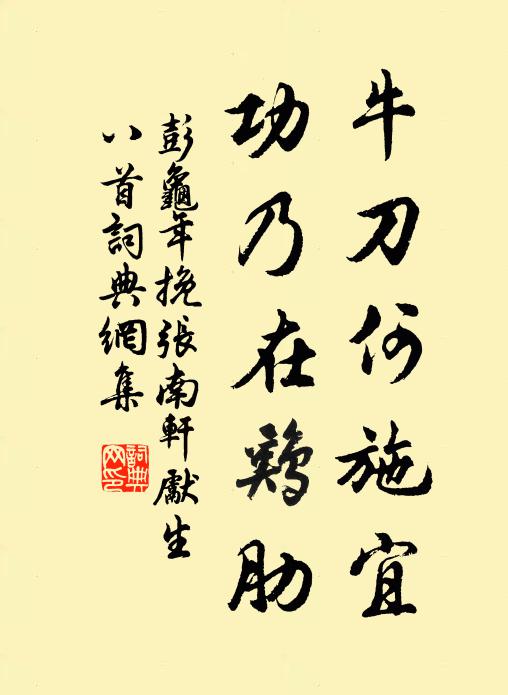 牛刀何施宜
功乃在鷄肋
彭龜年挽張南軒獻生
八首詞典網集
詞典
网印